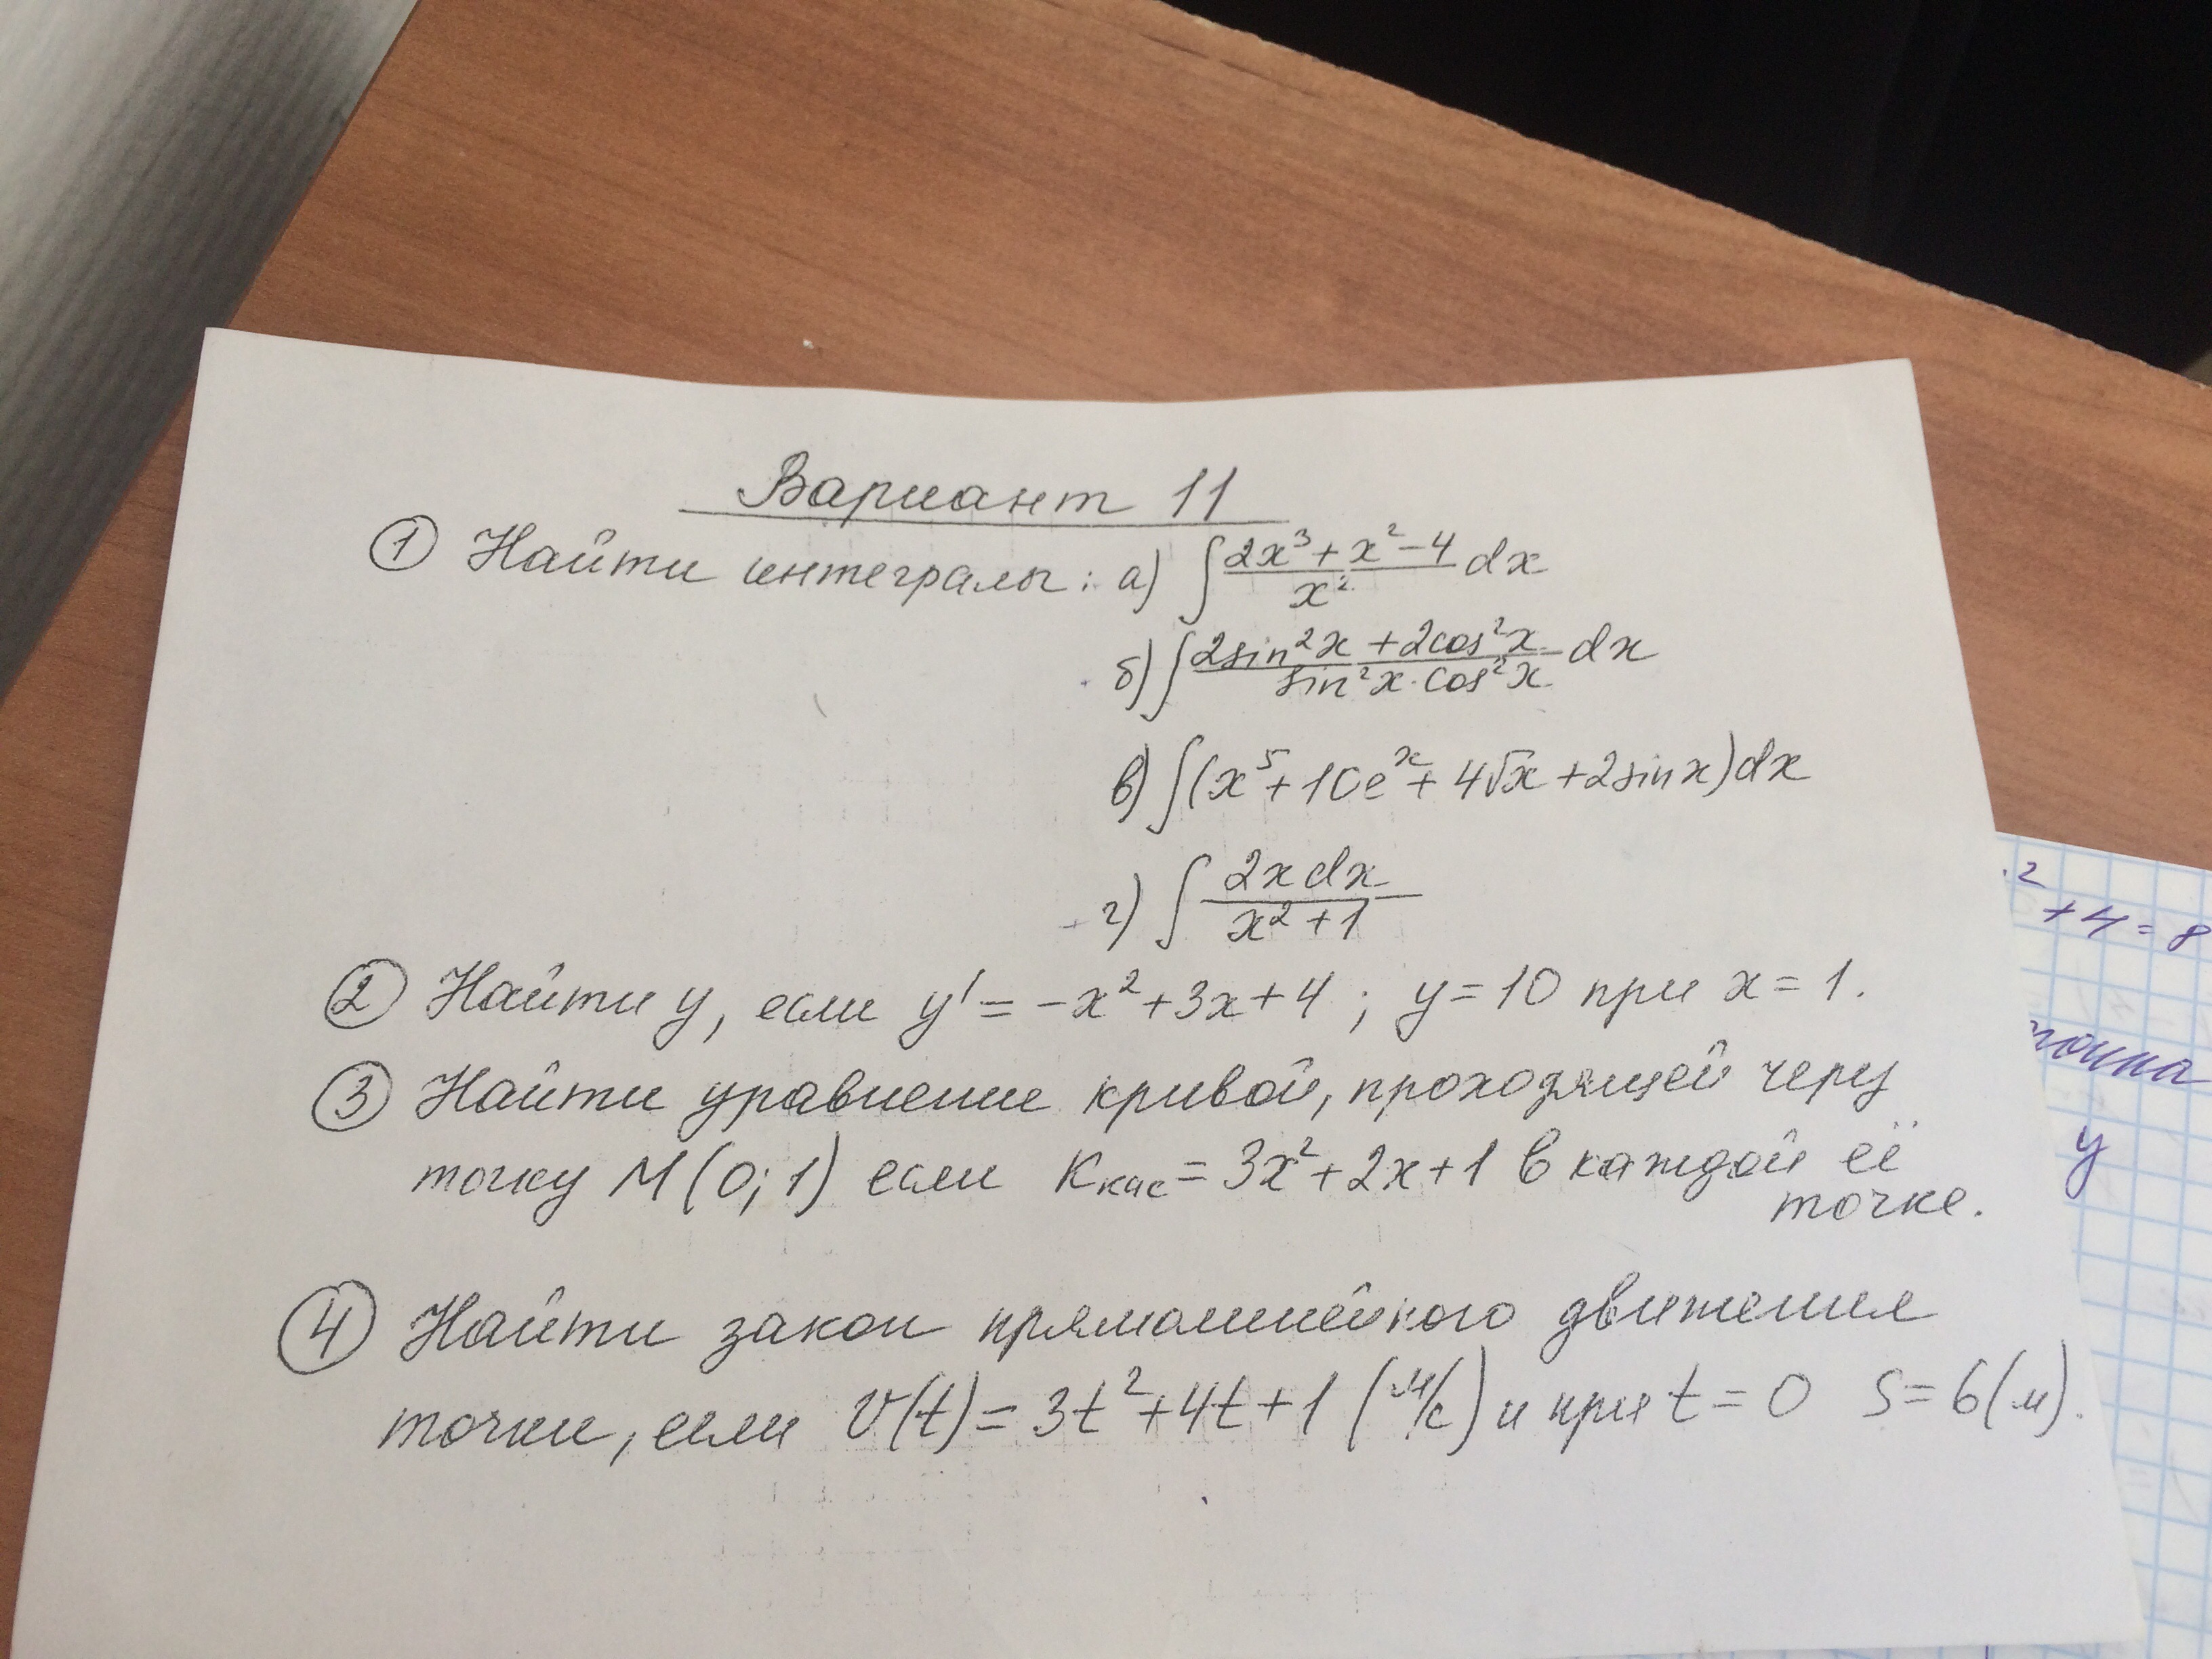 Вариант 11
① Найти интегралы: а) ∫ (2x³ + x² - 4)/x² dx
б) ∫ (2sin²x + 2cos²x)/(sin²x · cos²x) dx
в) ∫(x⁵ + 10eˣ + 4√x + 2sin x)dx
г) ∫ (2x dx)/(x² + 1)
② Найти y, если y' = -x² + 3x + 4 ; y = 10 при x = 1.
③ Найти уравнение кривой, проходящей через
точку M(0; 1) если Kкас = 3x² + 2x + 1 в каждой её
точке.
④ Найти закон прямолинейного движения
точки, если v(t) = 3t² + 4t + 1 (м/с) и при t = 0 S = 6(м).
2
+4 = 8
у